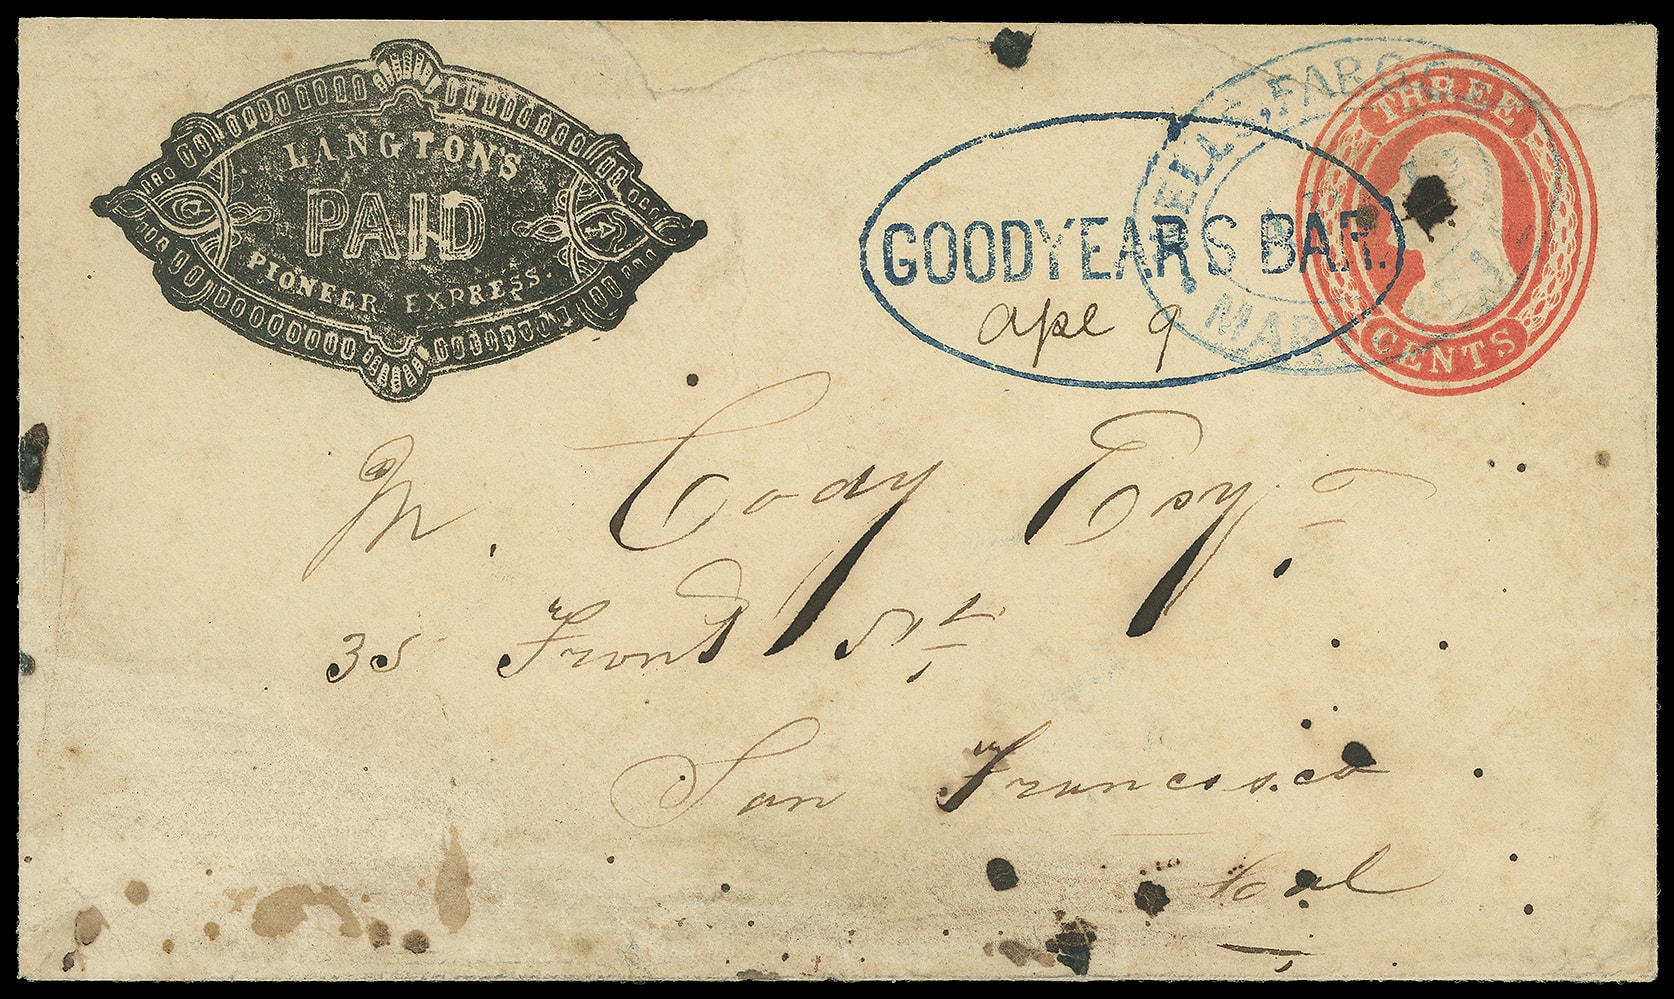 LANGTON'S
PAID
PIONEER EXPRESS.
GOODYEAR'S BAR.
Ape 9
WELLS, FARGO
MARY
THREE
CENTS
M. Cody Esqr.
35 Front St
San Francisco
Cal